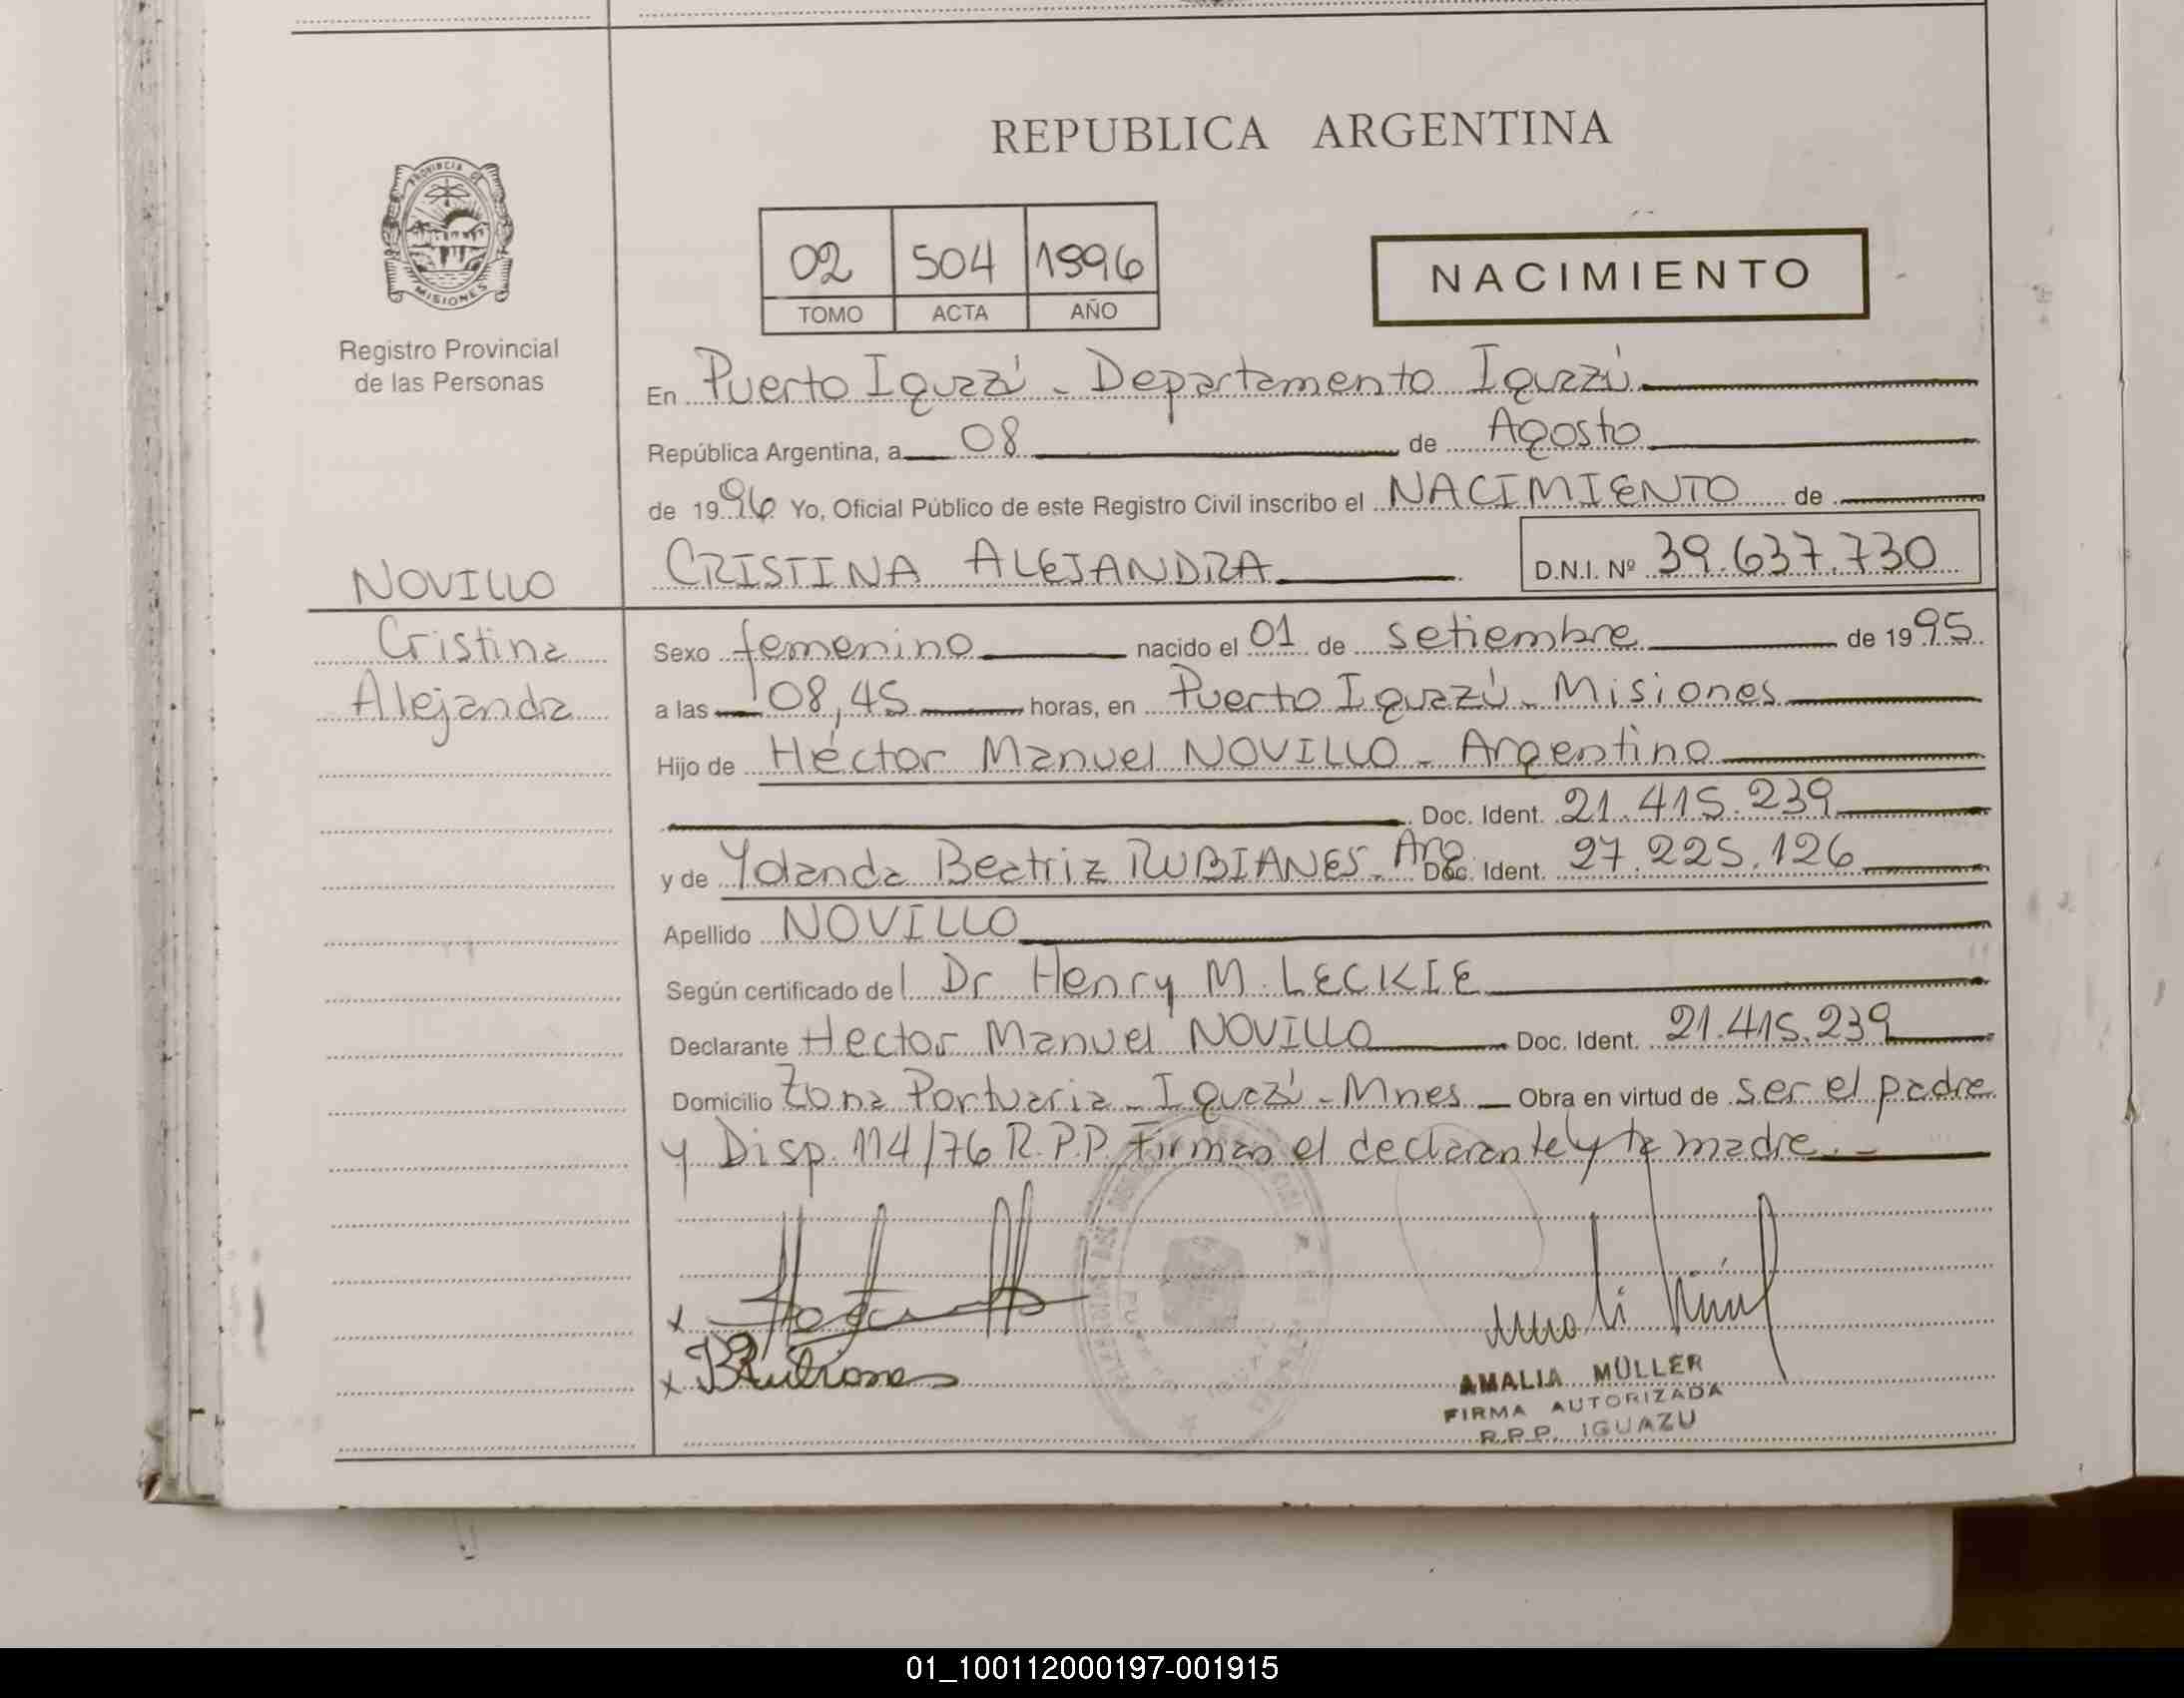 REPUBLICA ARGENTINA
PROVINCIA DE
MISIONES
Registro Provincial
de las Personas
02 504 1996
TOMO ACTA AÑO
NACIMIENTO
En Puerto Iguazú - Departamento Iguazú
República Argentina, a 08 de Agosto
de 1996 Yo, Oficial Público de este Registro Civil inscribo el NACIMIENTO de
CRISTINA ALEJANDRA D.N.I. Nº 39.637.730
NOVILLO
Cristina
Alejandra
Sexo femenino nacido el 01 de setiembre de 1995
a las 08,45 horas, en Puerto Iguazú - Misiones
Hijo de Héctor Manuel NOVILLO - Argentino
Doc. Ident. 21.415.239
y de Yolanda Beatriz RUBIANES - Arg. Doc. Ident. 27.225.126
Apellido NOVILLO
Según certificado del Dr Henry M. LECKIE
Declarante Hector Manuel NOVILLO Doc. Ident. 21.415.239
Domicilio Zona Portuaria - Iguazú - Mnes - Obra en virtud de ser el padre
y Disp. 114/76 R.P.P. Firman el declarante y la madre. -
x
x BRubianes
AMALIA MÜLLER
FIRMA AUTORIZADA
R.P.P. IGUAZU
01_100112000197-001915